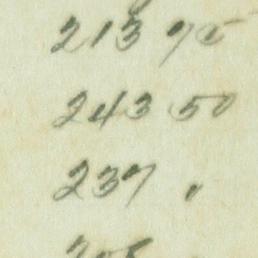 213 75
243 50
237 "